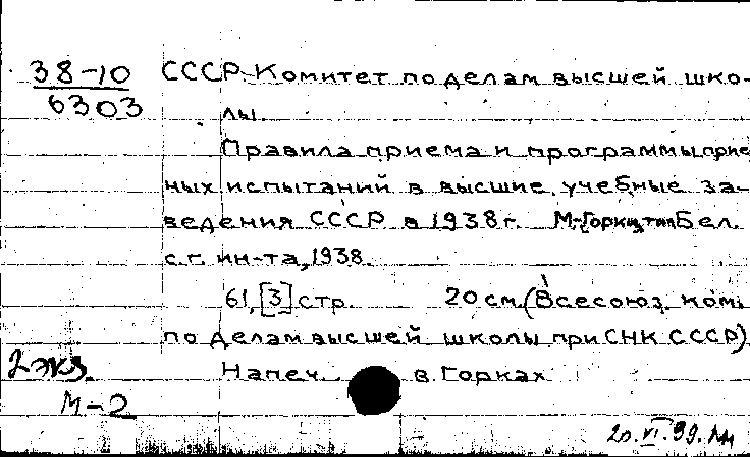 38-10
6303
СССР. Комитет по делам высшей шко-
лы.
Правила приема и программы прие
ных испытаний в высшие учебные за-
ведения СССР в 1938 г. М-Горки, тип Бел.
с.г. ин-та, 1938.
61, [3] стр. 20 см. (Всесоюз. ком.
по делам высшей школы при СНК СССР)
Напеч. в Горках
2 экз.
М-2
20.VI.99.